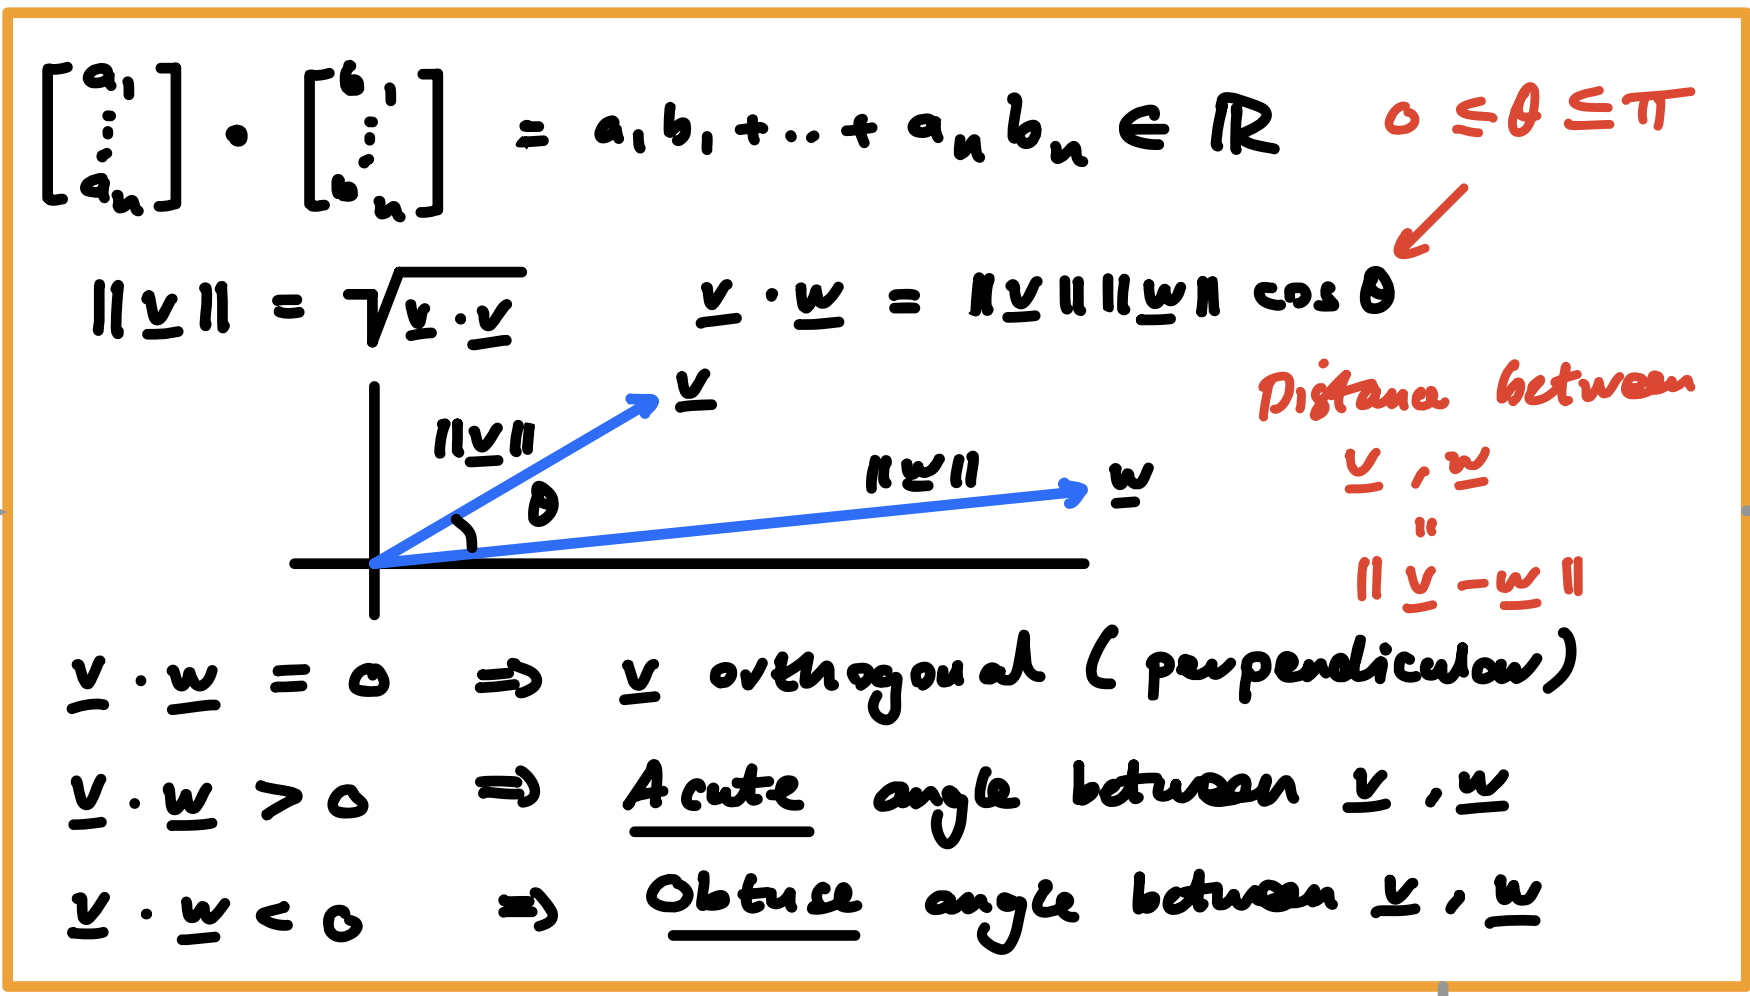 [a₁ ⋮ aₙ] · [b₁ ⋮ bₙ] = a₁b₁ + .. + aₙbₙ ∈ ℝ
0 ≤ θ ≤ π
||v|| = √(v · v)
v · w = ||v|| ||w|| cos θ
v
||v||
θ
||w||
w
Distance between
v , w
=
||v - w||
v · w = 0 ⇒ v orthogonal (perpendicular)
v · w > 0 ⇒ Acute angle between v , w
v · w < 0 ⇒ Obtuse angle between v , w